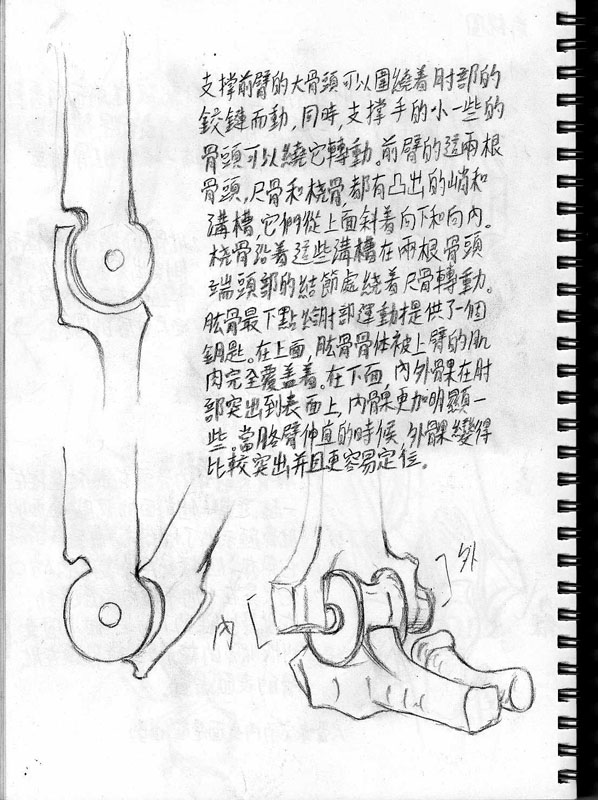 支撑前臂的大骨頭可以圍繞着肘部的
鉸鏈而動,同時,支撑手的小一些的
骨頭可以繞它轉動。前臂的這兩根
骨頭,尺骨和桡骨,都有凸出的峭和
溝槽,它們從上面斜着向下和向內。
桡骨沿着這些溝槽在兩根骨頭
端頭部的結節處绕着尺骨轉動。
肱骨最下點給肘部運動提供了一個
鑰匙。在上面,肱骨骨体被上臂的肌
肉完全覆盖着。在下面,內外髁在肘
部突出到表面上,內髁更加明顯一
些。當胳臂伸直的時候,外髁變得
比較突出并且更容易定位。
外
內